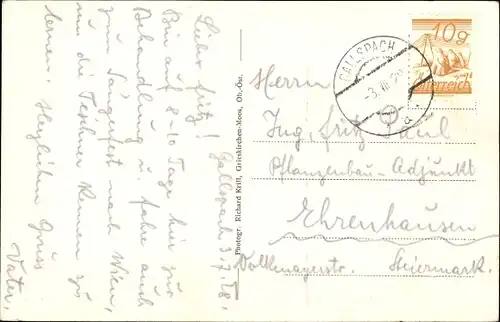 Gallspach 3.7.28.
Lieber Fritz!
Bin auf 8-10 Tage hier zur
Behandlung u. fahre auch
zum Sängerfest nach Wien,
um die Tochter Kennen zu
lernen. Herzlichen Gruss
Vater.
Photogr. Richard Krill, Grieskirchen-Moos, Ob.-Öst.
GALLSPACH
-3.VII.28
a
10g
Österreich
Herrn
Ing. Fritz Paul
Pflanzenbau-Adjunkt
Ehrenhausen
Steiermark.